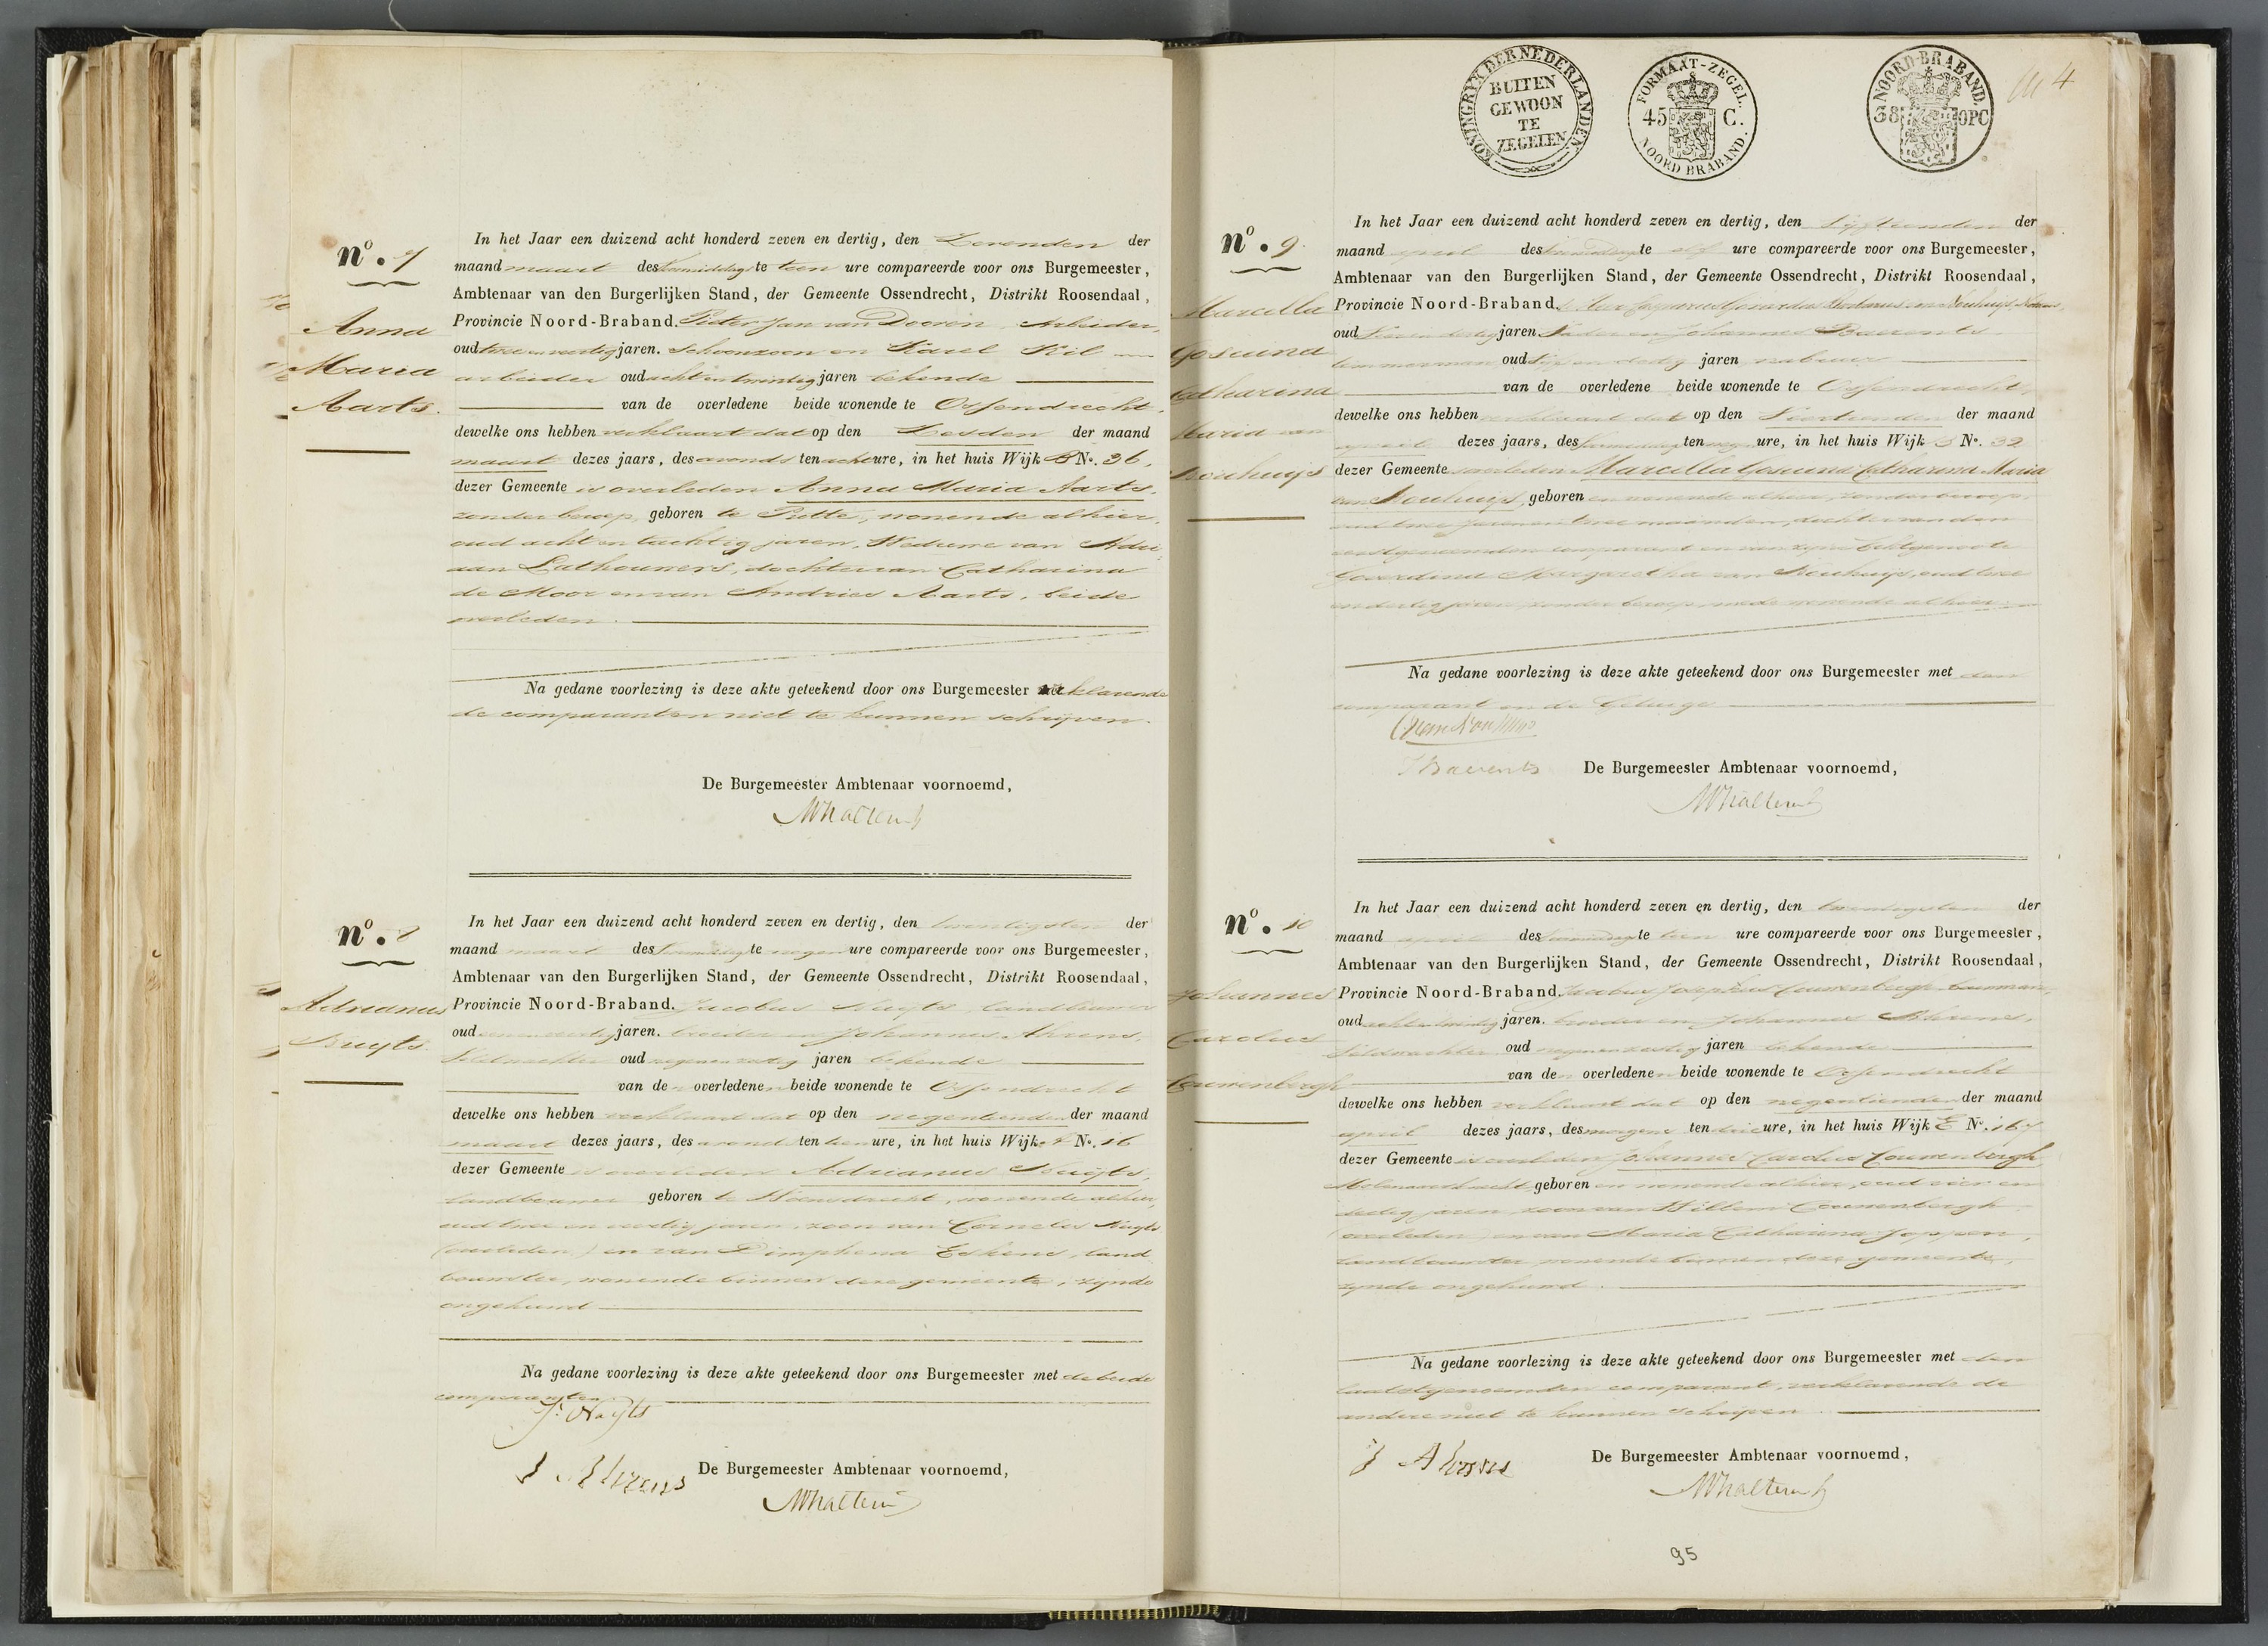 N.º 7
Anna
Maria
Aarts.
In het Jaar een duizend acht honderd zeven en dertig, den Zevenden der
maand maart des voormiddags te tien ure compareerde voor ons Burgemeester,
Ambtenaar van den Burgerlijken Stand, der Gemeente Ossendrecht, Distrikt Roosendaal,
Provincie Noord-Braband. Pieter Jan van Dooren, Arbeider,
oud twee en veertig jaren. Schoonzoon en Karel Kil
arbeider oud acht en twintig jaren bekende
van de overledene beide wonende te Ossendrecht,
dewelke ons hebben verklaart dat op den Zesden der maand
maart dezes jaars, des avonds ten acht ure, in het huis Wijk B Nº. 36,
dezer Gemeente is overleden Anna Maria Aarts,
zonder beroep, geboren te Putte, wonende alhier,
oud acht en tachtig jaren, Weduwe van Adri
aan Lathouwers, dochter van Catharina
de Moor en van Andries Aarts, beide
overleden.
Na gedane voorlezing is deze akte geteekend door ons Burgemeester verklarende
de comparanten niet te kunnen schrijven.
De Burgemeester Ambtenaar voornoemd,
N.º 8
Adrianus
Nuyts.
In het Jaar een duizend acht honderd zeven en dertig, den twentigsten der
maand maart des voormiddags te negen ure compareerde voor ons Burgemeester,
Ambtenaar van den Burgerlijken Stand, der Gemeente Ossendrecht, Distrikt Roosendaal,
Provincie Noord-Braband. Jacobus Nuyts, landbouwer
oud en dertig jaren. broeder en Johannes Ahrens,
Veldwachter oud negen en zestig jaren bekende
van den overledenen beide wonende te Ossendrecht
dewelke ons hebben verklaart dat op den negentienden der maand
maart dezes jaars, des avonds ten tien ure, in het huis Wijk Nº. 16
dezer Gemeente is overleden Adrianus Nuyts,
landbouwer geboren te Woensdrecht, wonende alhier,
oud twee en veertig jaren, zoon van Cornelis Nuyts
(overleden) en van Dimphena Eskens, land
bouwster, wonende binnen deze gemeente, zynde
ongehuwd
Na gedane voorlezing is deze akte geteekend door ons Burgemeester met de beide
comparanten.
J. Nuyts
J Ahrens
De Burgemeester Ambtenaar voornoemd,
KONINGRYK DER NEDERLANDEN
BUITEN
GEWOON
TE
ZEGELEN
FORMAAT-ZEGEL.
45 C.
NOORD BRABAND.
NOORD-BRABAND.
38 OPC
4
N.º 9.
Marcella
Gosuina
Catharina
Maria van
Nouhuijs
In het Jaar een duizend acht honderd zeven en dertig, den Vyftienden der
maand april des voormiddags te elf ure compareerde voor ons Burgemeester,
Ambtenaar van den Burgerlijken Stand, der Gemeente Ossendrecht, Distrikt Roosendaal,
Provincie Noord-Braband.
oud en dertig jaren. Vader en Johannes Baerents
timmerman oud vijf en dertig jaren nabuur
van de overledene beide wonende te Ossendrecht,
dewelke ons hebben verklaart dat op den Veertienden der maand
april dezes jaars, des voormiddags ten negen ure, in het huis Wijk B Nº. 32
dezer Gemeente is overleden Marcella Gosuina Catharina Maria
van Nouhuijs, geboren en wonende alhier, zonder beroep,
oud twee jaren en twee maanden, dochter van den
eerstgenoemden comparant en van zyne Echtgenoote
Goverdina Margaretha van Nouhuijs, oud twee
en dertig jaren, zonder beroep, mede wonende alhier
Na gedane voorlezing is deze akte geteekend door ons Burgemeester met den
comparant en de Getuige
J Baerents
De Burgemeester Ambtenaar voornoemd,
N.º 10
Johannes
Carolus
Couwenbergh
In het Jaar een duizend acht honderd zeven en dertig, den twentigsten der
maand april des voormiddags te tien ure compareerde voor ons Burgemeester,
Ambtenaar van den Burgerlijken Stand, der Gemeente Ossendrecht, Distrikt Roosendaal,
Provincie Noord-Braband. Jacobus Josephus Couwenbergh bouwman,
oud acht en twintig jaren. broeder en Johannes Ahrens,
Veldwachter oud negen en zestig jaren bekende
van den overledenen beide wonende te Ossendrecht
dewelke ons hebben verklaart dat op den negentienden der maand
april dezes jaars, des morgens ten drie ure, in het huis Wijk E Nº. 167
dezer Gemeente is overleden Johannes Carolus Couwenbergh,
Molenaarsknecht geboren en wonende alhier, oud vier en
dertig jaren, zoon van Willem Couwenbergh
(overleden) en van Maria Catharina Joppen,
landbouwster, wonende binnen deze gemeente,
zynde ongehuwd.
Na gedane voorlezing is deze akte geteekend door ons Burgemeester met den
laatstgenoemden comparant, verklarende de
andere niet te kunnen schrijven.
J Ahrens
De Burgemeester Ambtenaar voornoemd,
95